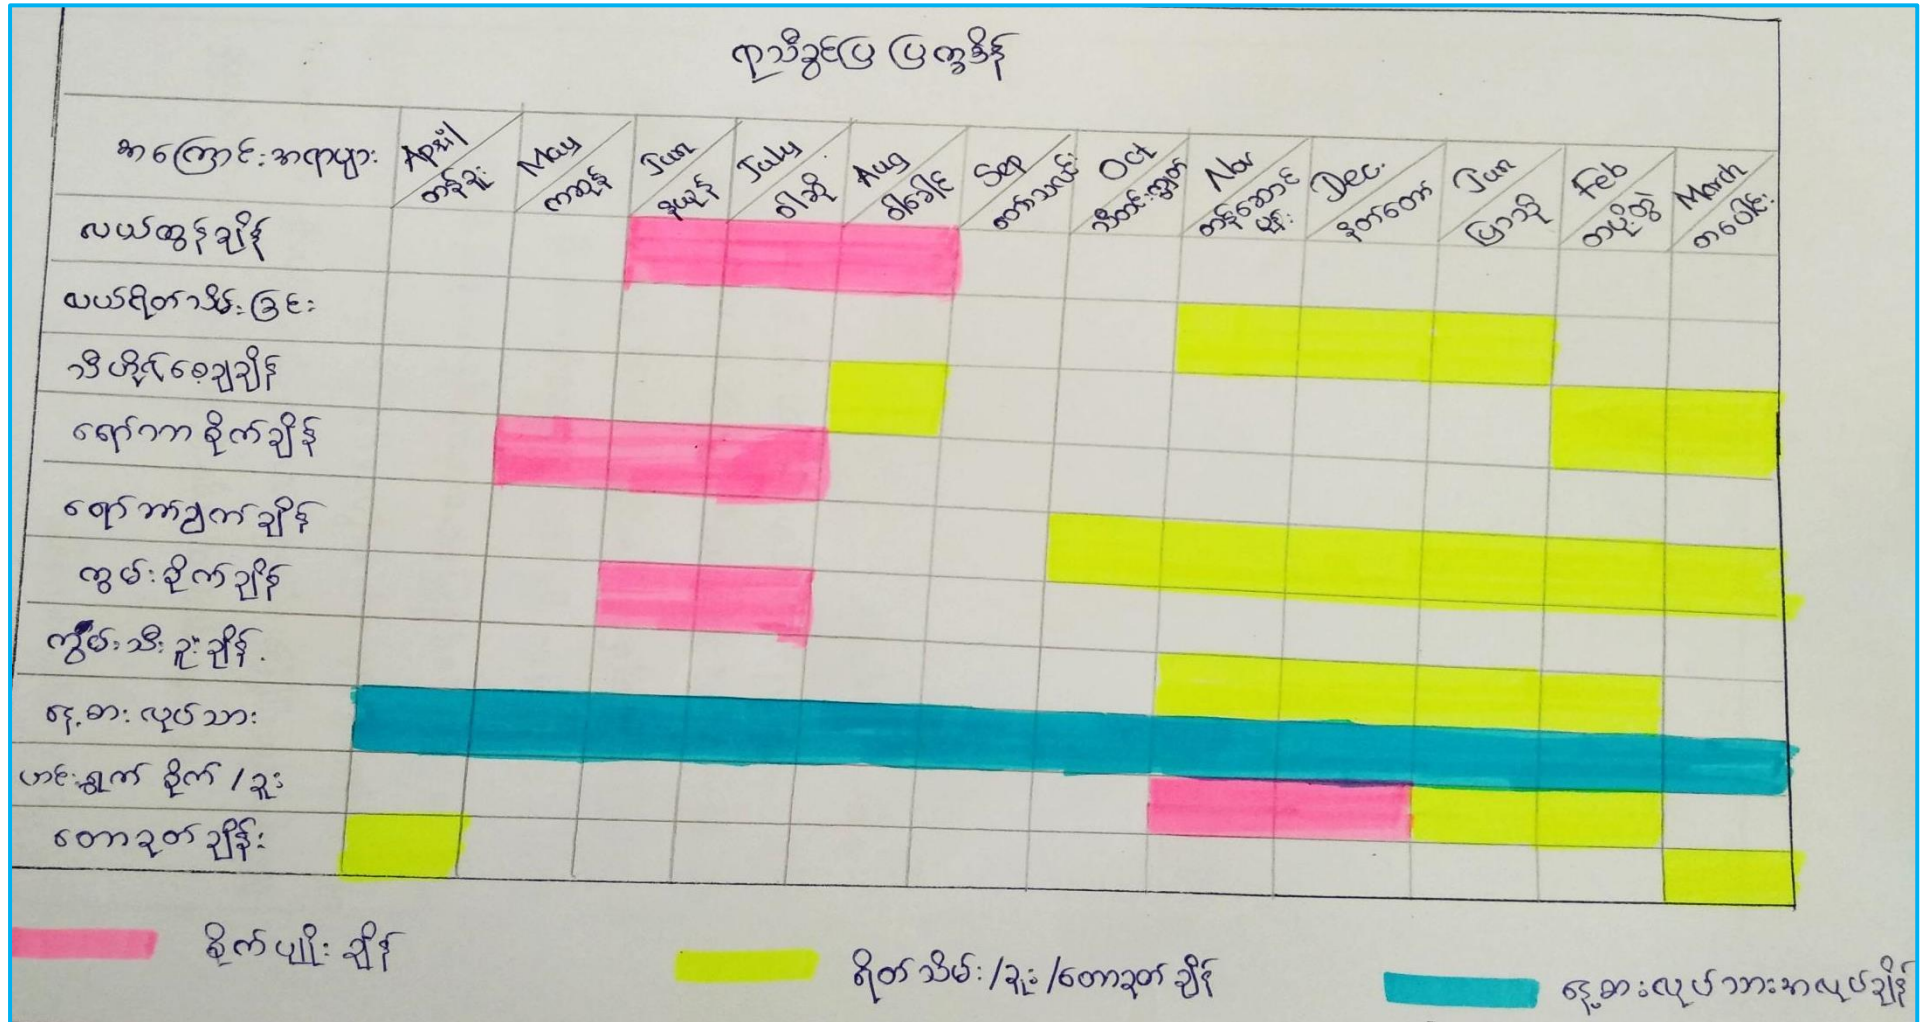 ရာသီခွင်ပြ ပြက္ခဒိန်
အကြောင်းအရာများ
April
တန်ခူး
May
ကဆုန်
Jun
နယုန်
July
ဝါဆို
Aug
ဝါခေါင်
Sep
တော်သလင်း
Oct
သီတင်းကျွတ်
Nov
တန်ဆောင်မုန်း
Dec.
နတ်တော်
Jun
ပြာသို
Feb
တပို့တွဲ
March
တပေါင်း
လယ်ထွန်ချိန်
လယ်ရိတ်သိမ်းခြင်း
သီဟိုဠ်စေ့ချချိန်
ရော်ဘာစိုက်ချိန်
ရော်ဘာခြစ်ချိန်
ကွမ်းစိုက်ချိန်
ကွမ်းသီးခူးချိန်.
နေ့စားလုပ်သား
ဟင်းရွက် စိုက် / ခူး
တောခုတ်ချိန်း
စိုက်ပျိုးချိန်
ရိတ်သိမ်း/ခူး/တောခုတ်ချိန်
နေ့စားလုပ်သားအလုပ်ချိန်